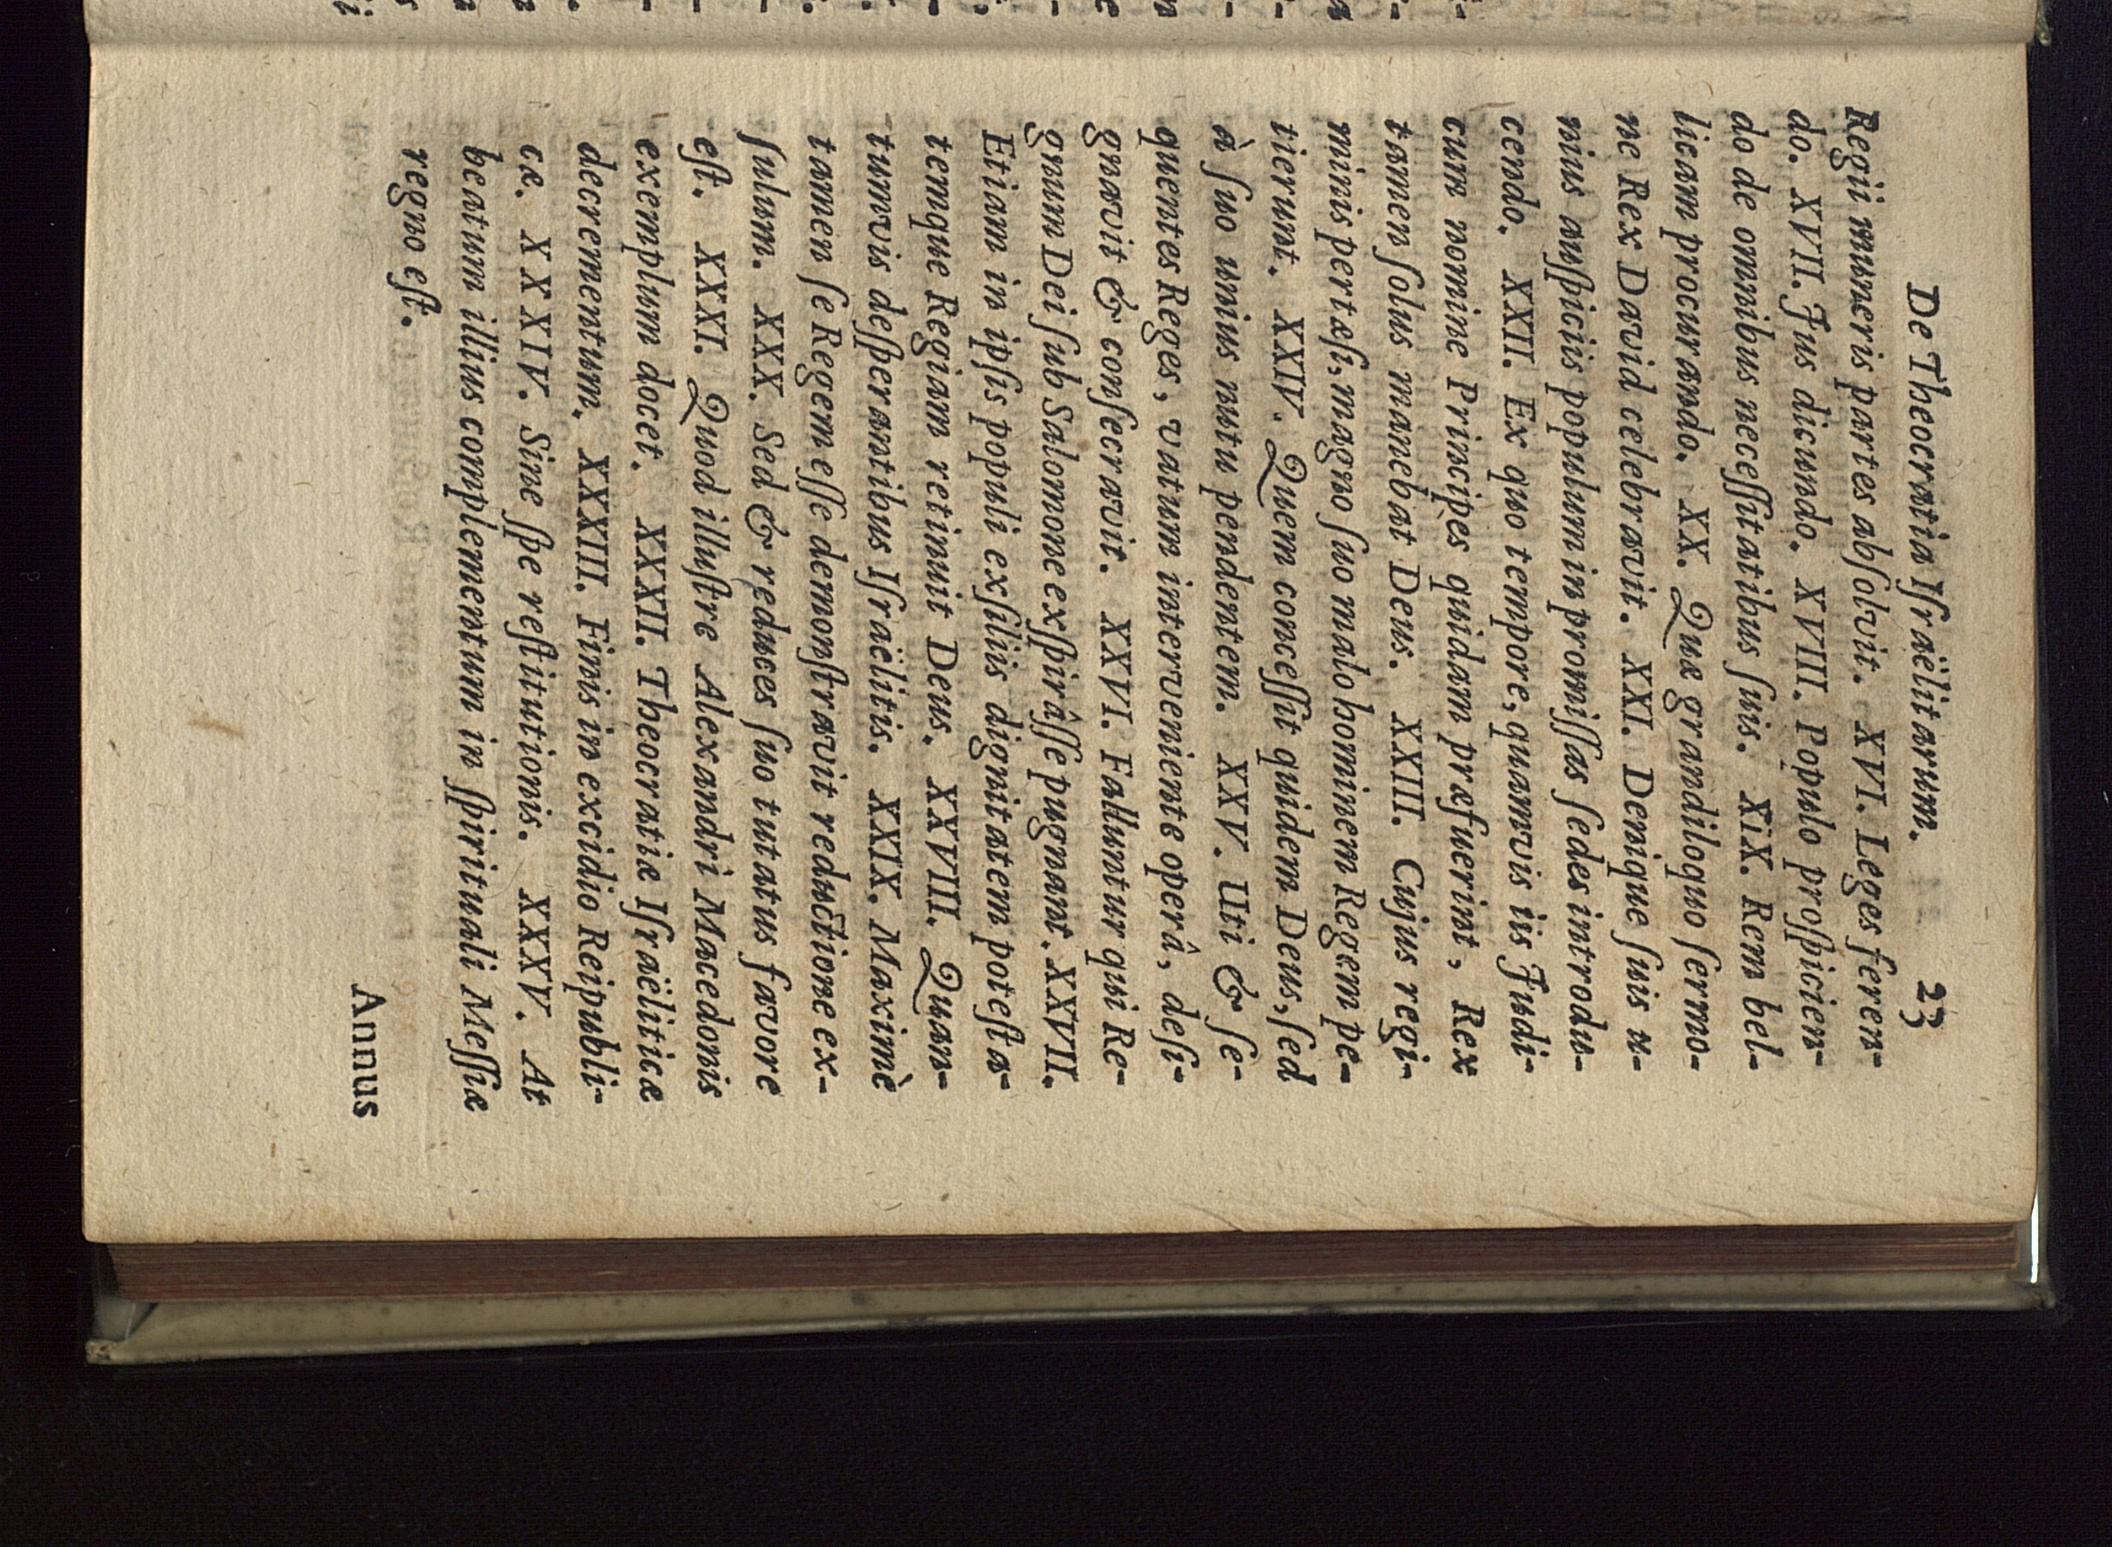 De Theocratia Iſraëlitarum. 23
Regii muneris partes abſolvit. XVI. Leges feren-
do. XVII. Jus dicundo. XVIII. Populo proſpicien-
do de omnibus neceſſitatibus ſuis. XiX. Rem bel-
licam procurando. XX. Quæ grandiloquo ſermo-
ne Rex David celebravit. XXI. Denique ſuis u-
nius auſpiciis populum in promiſſas ſedes introdu-
cendo. XXII. Ex quo tempore, quamvis iis Judi-
cum nomine Principes quidam præfuerint, Rex
tamen ſolus manebat Deus. XXIII. Cujus regi-
minis pertæſi, magno ſuo malo hominem Regem pe-
tierunt. XXIV. Quem conceſſit quidem Deus, ſed
à ſuo unius nutu pendentem. XXV. Uti & ſe-
quentes Reges, vatum interveniente operâ, deſi-
gnavit & conſecravit. XXVI. Falluntur qui Re-
gnum Dei ſub Salomone exſpirâſſe pugnant. XXVII.
Etiam in ipſis populi exſiliis dignitatem poteſta-
temque Regiam retinuit Deus. XXVIII. Quan-
tumvis deſperantibus Iſraëlitis. XXIX. Maximè
tamen ſe Regem eſſe demonſtravit reductione ex-
ſulum. XXX. Sed & reduces ſuo tutatus favore
eſt. XXXI. Quod illuſtre Alexandri Macedonis
exemplum docet. XXXII. Theocratiæ Iſraëliticæ
decrementum. XXXIII. Finis in excidio Reipubli-
cæ. XXXIV. Sine ſpe reſtitutionis. XXXV. At
beatum illius complementum in ſpirituali Meſſiæ
regno eſt.
Annus